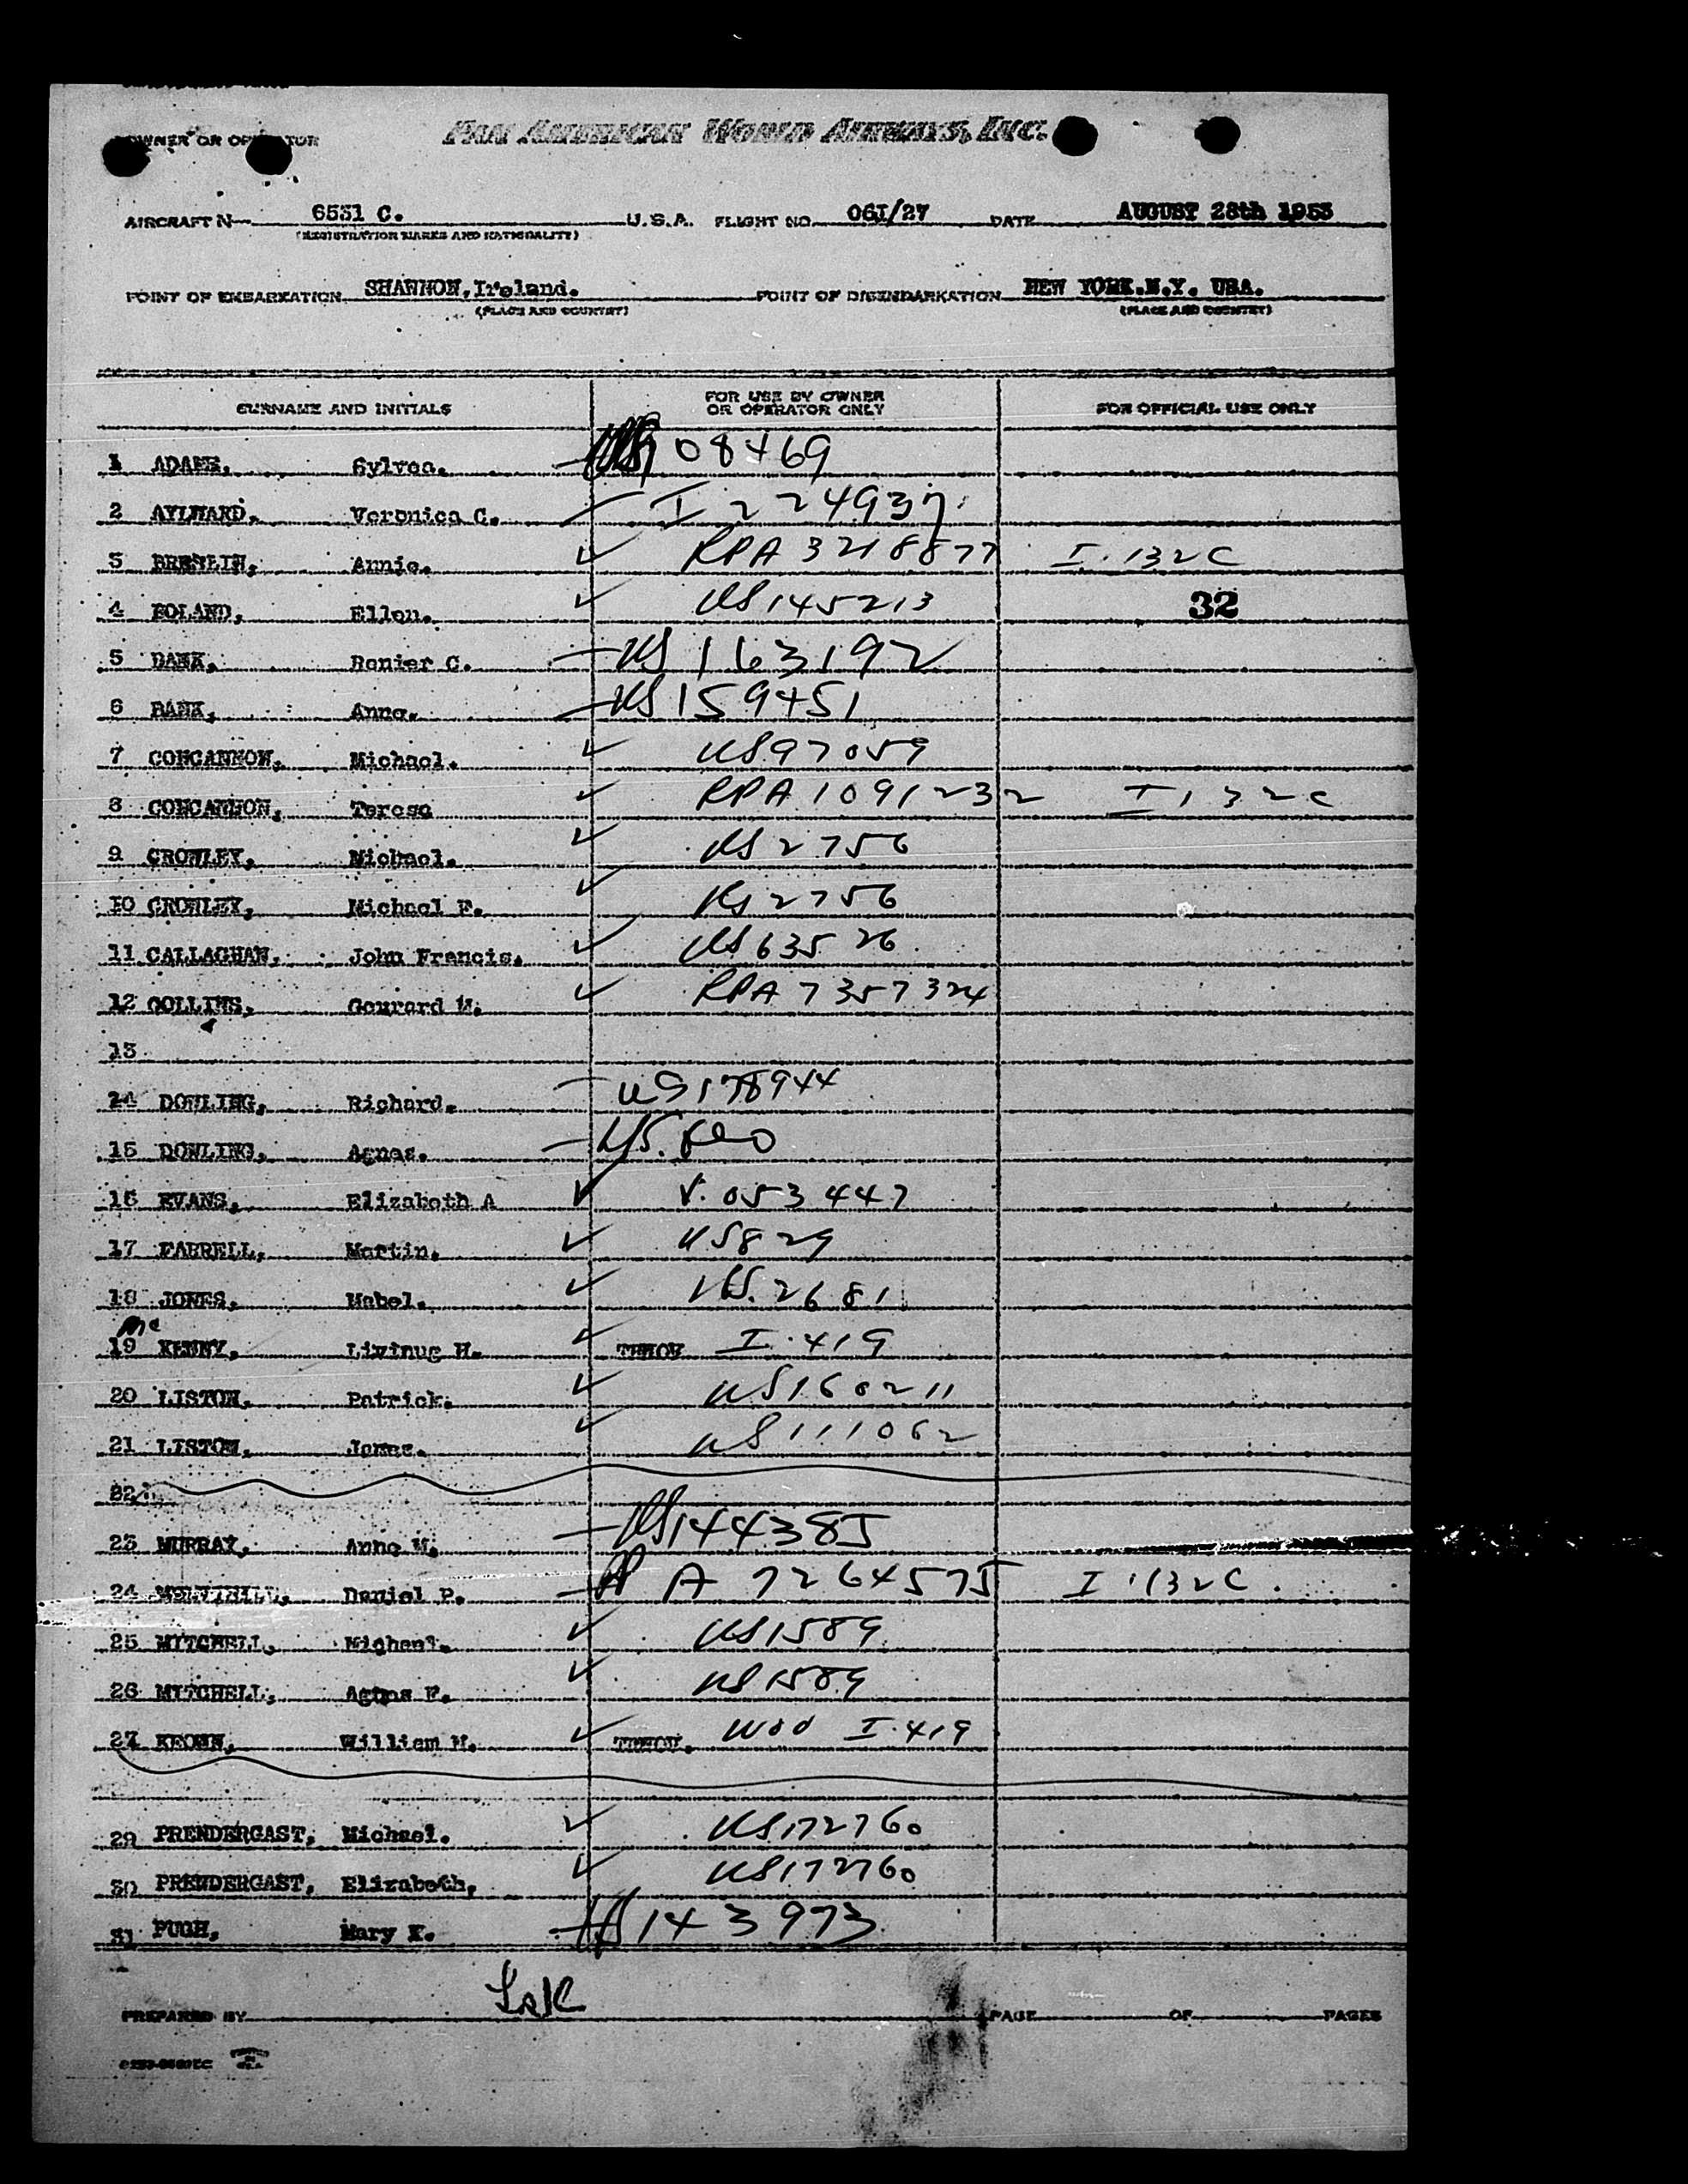 OWNER OR OPERATOR PAN AMERICAN WORLD AIRWAYS, INC.
AIRCRAFT N 6531 C. U.S.A. FLIGHT NO 061/27 DATE AUGUST 28th 1953
(REGISTRATION MARKS AND NATIONALITY)
POINT OF EMBARKATION SHANNON, Ireland. POINT OF DISEMBARKATION NEW YORK.N.Y. USA.
(PLACE AND COUNTRY) (PLACE AND COUNTRY)
SURNAME AND INITIALS FOR USE BY OWNER OR OPERATOR ONLY FOR OFFICIAL USE ONLY
1 08469
2 AYLWARD, Veronica C. I 224937
3 BRESLIN, Annie. RPA 3218877 I.132C
4 BOLAND, Ellen. US145213 32
5 BANK, Renier C. US 163192
6 BANK, Anna. US159451
7 CONCANNON, Michael. US97059
8 CONCANNON, Teresa RPA 1091232 I132C
9 CROWLEY, Michael. US2756
10 CROWLEY, Michael F. US2756
11 CALLAGHAN, John Francis. US63526
12 COLLINS, Gourard M. RPA 7357324
13
14 DOWLING, Richard. US178944
15 DOWLING, Agnes. US.
16 EVANS, Elizabeth A V.053447
17 FARRELL, Martin. US829
18 JONES, Mabel. US.2681
Mc
19 KENNY, H. I.419
20 LISTON, Patrick. US160211
21 LISTON, James. US111062
22
23 MURRAY, Anne M. US144385
24 Daniel P. A 7264575 I.132C.
25 MITCHELL, Michael. US1589
26 MITCHELL, Agnes F. US1589
27 KEOWN, William H. I.419
29 PRENDERGAST, Michael. US172760
30 PRENDERGAST, Elizabeth, US172760
31 PUGH, Mary K. US143973
PREPARED BY PAGE OF PAGES